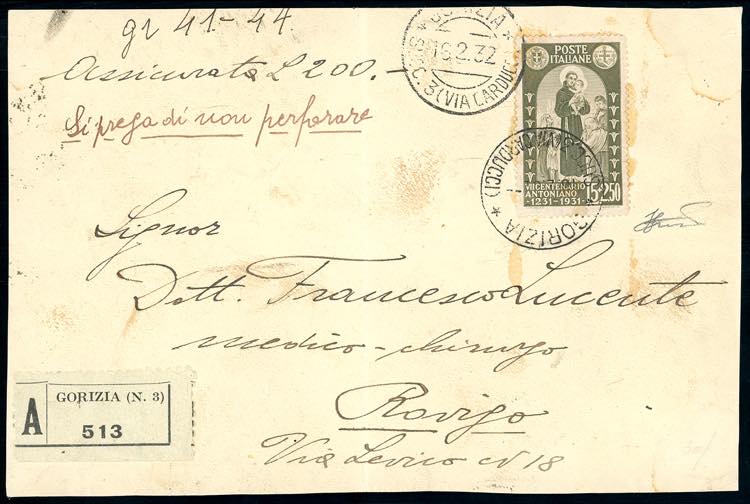 gr 41-44
Assicurata L 200.-
Si prega di non perforare
GORIZIA
16.2.32
SUC. 3 (VIA CARDUCCI)
POSTE
ITALIANE
VII CENTENARIO
ANTONIANO
1231-1931
L5+2.50
GORIZIA
(VIA CARDUCCI)
Signor
Dott. Francesco Lucente
medico-chirurgo
Rovigo
Via Levico N 18
A
GORIZIA (N. 3)
513